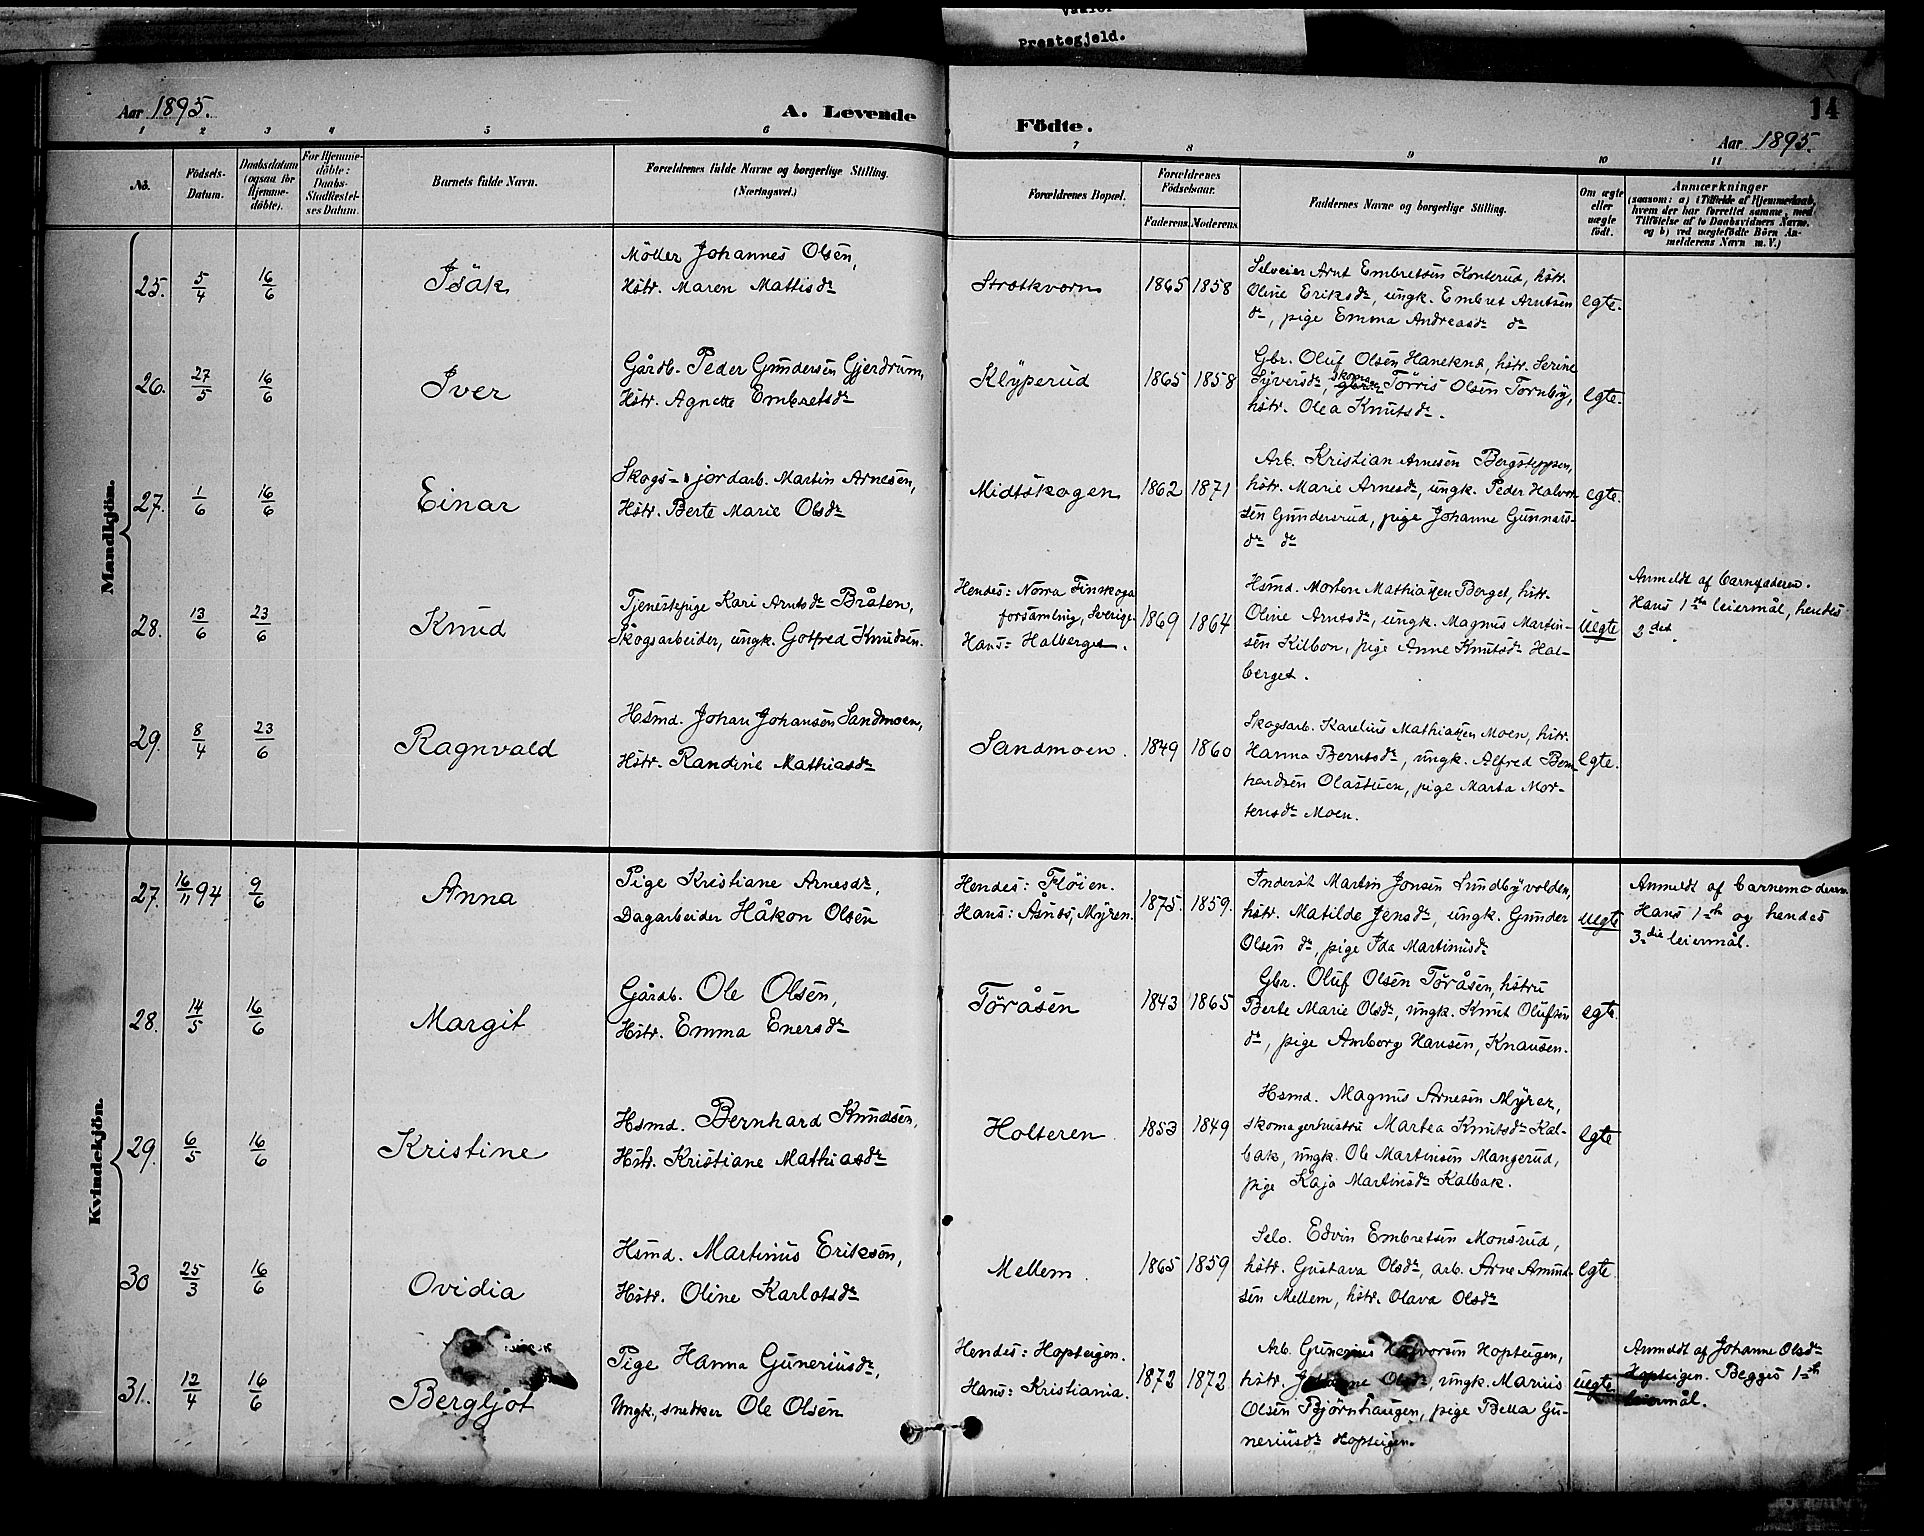 Vaaler
Prestegjeld.
Aar 1895.
A. Levende
Födte.
14
Aar 1895.
1 2 3 4 5 6 7 8 9 10 11
No.
Födsels-
Datum.
Daabsdatum
(ogsaa for
Hjemme-
döbte).
For Hjemme-
döbte:
Daabs-
Stadfæstel-
ses Datum.
Barnets fulde Navn.
Forældrenes fulde Navne og borgerlige Stilling.
(Næringsvei.)
Forældrenes Bopæl.
Forældrenes
Födselsaar.
Faderens. Moderens.
Faddernes Navne og borgerlige Stilling.
Om ægte
eller
uægte
födt.
Anmærkninger
(saasom: a) i Tilfælde af Hjemmedaab,
hvem der har forrettet samme, med
Tilföielse af to Daabsvidners Navne,
og b) ved uægtefödte Börn An-
melderens Navn m. V.)
Mandkjön.
25.
5/4
16/6
Isak
Möller Johannes Olsen,
Hstr. Maren Mattisdr
Strætkvern
1865 1858
Selveier Arnt Embretsen Konterud, hstr.
Oline Eriksdr, ungk. Embret Arntsen
do, pige Emma Andreasdr do
egte.
26.
27/5
16/6
Iver
Gårdb. Peder Gundersen Gjerdrum,
Hstr. Agnette Embretsdr
Klyperud
1865 1858
Gbr. Oluf Olsen Hanekna, hstr. Serine
Syversdr, skomr Torris Olsen Tornby,
hstr. Olea Knutsdr.
egte.
27.
1/6
16/6
Einar
Skogs- & jordarb. Martin Arnesen,
Hstr. Berte Marie Olsdr
Midtskogen
1862 1871
Arb. Kristian Arnesen Bergsteppen,
hstr. Marie Arnesdr, ungk. Peder Halvor-
sen Gundersrud, pige Johanne Gunnars-
dr do
egte.
28.
13/6
23/6
Knud
Tjenestepige Kari Arntsdr Bråten,
Skogsarbeider, ungk. Gotfred Knudsen.
Hendes: Norra Finskoga
forsamling, Sverige.
Hans: Halberget.
1869 1864
Hsmd. Morten Mathiassen Berget, hstr.
Oline Arntsdr, ungk. Magnus Martin-
sen Kilbon, pige Anne Knutsdr Hal-
berget.
uegte
Anmeldt af barnfaderen.
Hans 1ste leiermål, hendes
2det.
29.
8/4
23/6
Ragnvald
Hsmd. Johan Johansen Sandmoen,
Hstr. Randine Mathiasdr
Sandmoen.
1849 1860
Skogsarb. Karelius Mathiassen Moen, hstr.
Hanna Berntsdr, ungk. Alfred Bern-
hardsen Olastuen, pige Marta Mor-
tensdr Moen.
egte.
Kvindekjön.
27.
16/11 94
9/6
Anna
Pige Kristiane Arnesdr,
Dagarbeider Håkon Olsen
Hendes: Fløien.
Hans: Åsnes, Myren.
1875. 1859.
Inderst Martin Jonsen Sundbyvolden,
hstr. Matilde Jensdr, ungk. Gunder
Olsen do, pige Ida Martinusdr
uegte
Anmeldt af barnemoderen
Hans 1ste og hendes
3die leiermål.
28.
14/5
16/6
Margit
Gårdb. Ole Olsen,
Hstr. Emma Enersdr
Toråsen
1843 1865
Gbr. Oluf Olsen Toråsen, hstru
Berte Marie Olsdr, ungk. Knut Olufsen
do, pige Amborg Hansen, Knausen.
egte.
29.
6/5
16/6
Kristine
Hsmd. Bernhard Knudsen,
Hstr. Kristiane Mathiasdr
Holteren
1853 1849
Hsmd. Magnus Arnesen Myrer,
skomagerhustru Martea Knutsdr Kal-
bak, ungk. Ole Martinsen Mangerud,
pige Kaja Martinsdr Kalbak.
egte
30
25/3
16/6
Ovidia
Hsmd. Martinus Eriksen,
Hstr. Oline Karlotsdr
Mellem.
1865 1859
Selv. Edvin Embretsen Monsrud,
hstr. Gustava Olsdr, arb. Arne Amund-
sen Mellem, hstr. Olava Olsdr
egte.
31.
12/4
16/6
Bergljot
Pige Hanna Guneriusdr,
Ungk., snedker Ole Olsen
Hendes: Hopteigen.
Hans: Kristiania.
1872 1872
Arb. Gunerius Halvorsen Hopteigen,
hstr. Johanne Olsdr, ungk. Marius
Olsen Björnhaugen, pige Bella Gu-
neriusdr Hopteigen.
uegte
Anmeldt af Johanne Olsdr
Hopteigen. Begges 1ste
leiermål.